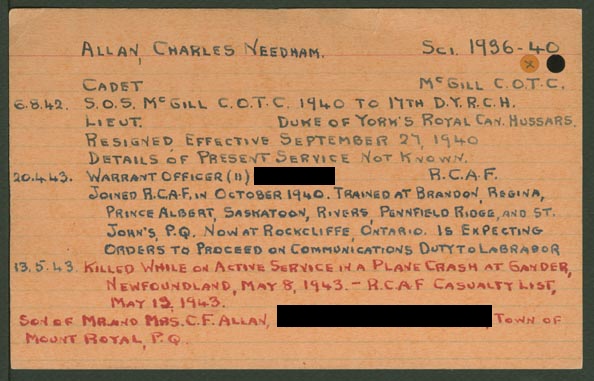 ALLAN, CHARLES NEEDHAM. SCI. 1936-40
CADET McGILL C.O.T.C.
6.8.42. S.O.S. McGILL C.O.T.C. 1940 TO 17TH D.Y.R.C.H.
LIEUT. DUKE OF YORK'S ROYAL CAN. HUSSARS.
RESIGNED EFFECTIVE SEPTEMBER 27, 1940
DETAILS OF PRESENT SERVICE NOT KNOWN.
20.4.43. WARRANT OFFICER (II) R.C.A.F.
JOINED R.C.A.F. IN OCTOBER 1940. TRAINED AT BRANDON, REGINA,
PRINCE ALBERT, SASKATOON, RIVERS, PENNFIELD RIDGE, AND ST.
JOHN'S, P.Q. NOW AT ROCKCLIFFE, ONTARIO. IS EXPECTING
ORDERS TO PROCEED ON COMMUNICATIONS DUTY TO LABRADOR
13.5.43. KILLED WHILE ON ACTIVE SERVICE IN A PLANE CRASH AT GANDER,
NEWFOUNDLAND, MAY 8, 1943. - R.C.A.F CASUALTY LIST,
MAY 13, 1943.
SON OF MR. AND MRS. C.F. ALLAN, , TOWN OF
MOUNT ROYAL, P.Q.